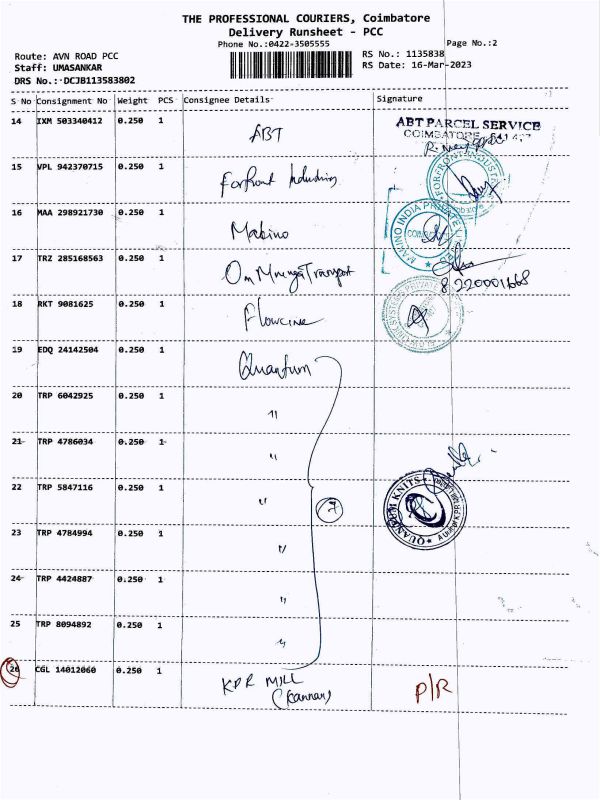 THE PROFESSIONAL COURIERS, Coimbatore
Delivery Runsheet - PCC
Phone No.:0422-3505555
Page No.:2
Route: AVN ROAD PCC
RS No.: 1135838
Staff: UMASANKAR
RS Date: 16-Mar-2023
DRS No.: DCJB113583802
S No Consignment No Weight PCS Consignee Details Signature
14 IXM 503340412 0.250 1 ABT
ABT PARCEL SERVICE
COIMBATORE
15 VPL 942370715 0.250 1 Forfront Industries
16 MAA 298921730 0.250 1 Makino
MAKINO INDIA PRIVATE
17 TRZ 285168563 0.250 1 Om Muruga Transport
8220001668
18 RKT 9081625 0.250 1 Flowcine
19 EDQ 24142504 0.250 1 Quantum
20 TRP 6042925 0.250 1 "
21 TRP 4786034 0.250 1 "
22 TRP 5847116 0.250 1 " 7
QUANTUM KNITS
23 TRP 4784994 0.250 1 "
24 TRP 4424887 0.250 1 "
25 TRP 8094892 0.250 1 "
26 CGL 14012060 0.250 1 KPR MILL P/R